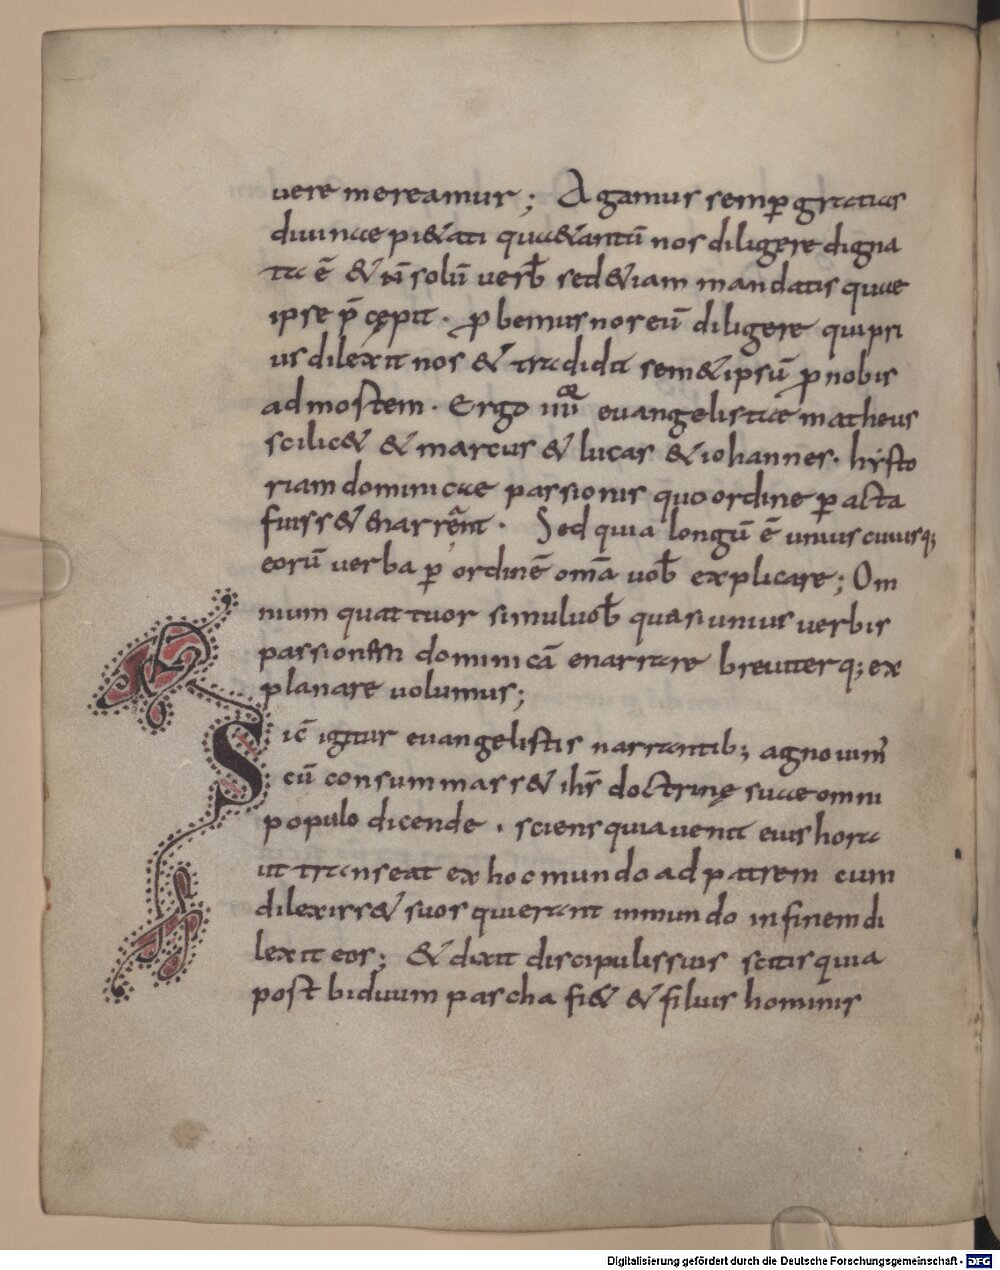 uere mereamur; Agamus semp̄ gratias
diuinae pi&ati qua&antū nos diligere digna
ta ē & n̄ solū uerb̄ sed &iam mandatis quae
ipse p̄cępit · p bemus nos eū diligere qui pri
us dilexit nos & tradidit sem&ipsū p nobis
ad mortem · Ergo euangelistae matheus
scilic& & marcus & lucas & iohannes · hẏsto
riam dominicae passionis quo ordine p acta
fuiss& enarrent · Sed quia longū ē unius cuiusq;
eorū uerba p ordinē omā uob̄ explicare; Om
nium quattuor simul uob̄ quasi unius uerbis
passionem dominicā enarrare breuiterq; ex
planare uolumus;
Sic̄ igitur euangelistis narrantib; agnouim̄
cū consummass& ih̄s doctrinę suae omni
populo dicende · sciens quia uenit eius hora
ut transeat ex hoc mundo ad patrem cum
dilexiss& suos qui erant in mundo in finem di
lexit eos; & dixit discipulis suis scitis quia
post biduum pascha fi& & filius hominis
Digitalisierung gefördert durch die Deutsche Forschungsgemeinschaft - DFG